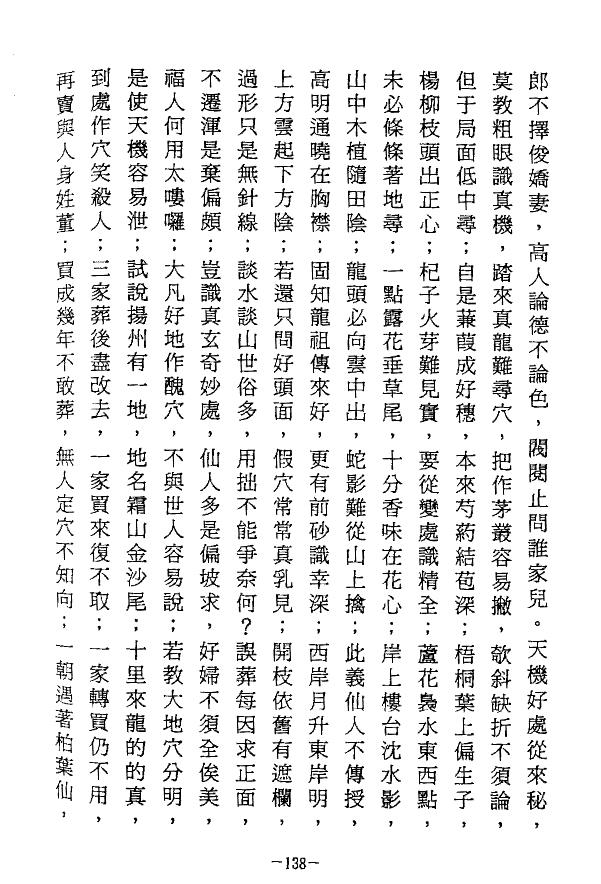 郎不擇俊嬌妻，高人論德不論色，閥閱止問誰家兒。天機好處從來秘，
莫教粗眼識真機，踏來真龍難尋穴，把作茅叢容易撇，欹斜缺折不須論，
但于局面低中尋；自是蒹葭成好穗，本來芍葯結苞深；梧桐葉上偏生子，
楊柳枝頭出正心；杞子火芽難見實，要從變處識精全；蘆花裊水東西點，
未必條條著地尋；一點露花垂草尾，十分香味在花心；岸上樓台沈水影，
山中木植隨田陰；龍頭必向雲中出，蛇影難從山上擒；此義仙人不傳授，
高明通曉在胸襟；固知龍祖傳來好，更有前砂識幸深；西岸月升東岸明，
上方雲起下方陰；若還只問好頭面，假穴常常真乳見；開枝依舊有遮欄，
過形只是無針線；談水談山世俗多，用拙不能爭奈何？誤葬每因求正面，
不遷渾是棄偏頗；豈識真玄奇妙處，仙人多是偏坡求，好婦不須全俟美，
福人何用太嘍囉；大凡好地作醜穴，不與世人容易說；若教大地穴分明，
是使天機容易泄；試說揚州有一地，地名霜山金沙尾；十里來龍的的真，
到處作穴笑殺人；三家葬後盡改去，一家買來復不取；一家轉買仍不用，
再賣與人身姓董；買成幾年不敢葬，無人定穴不知向；一朝遇著柏葉仙，
－138－